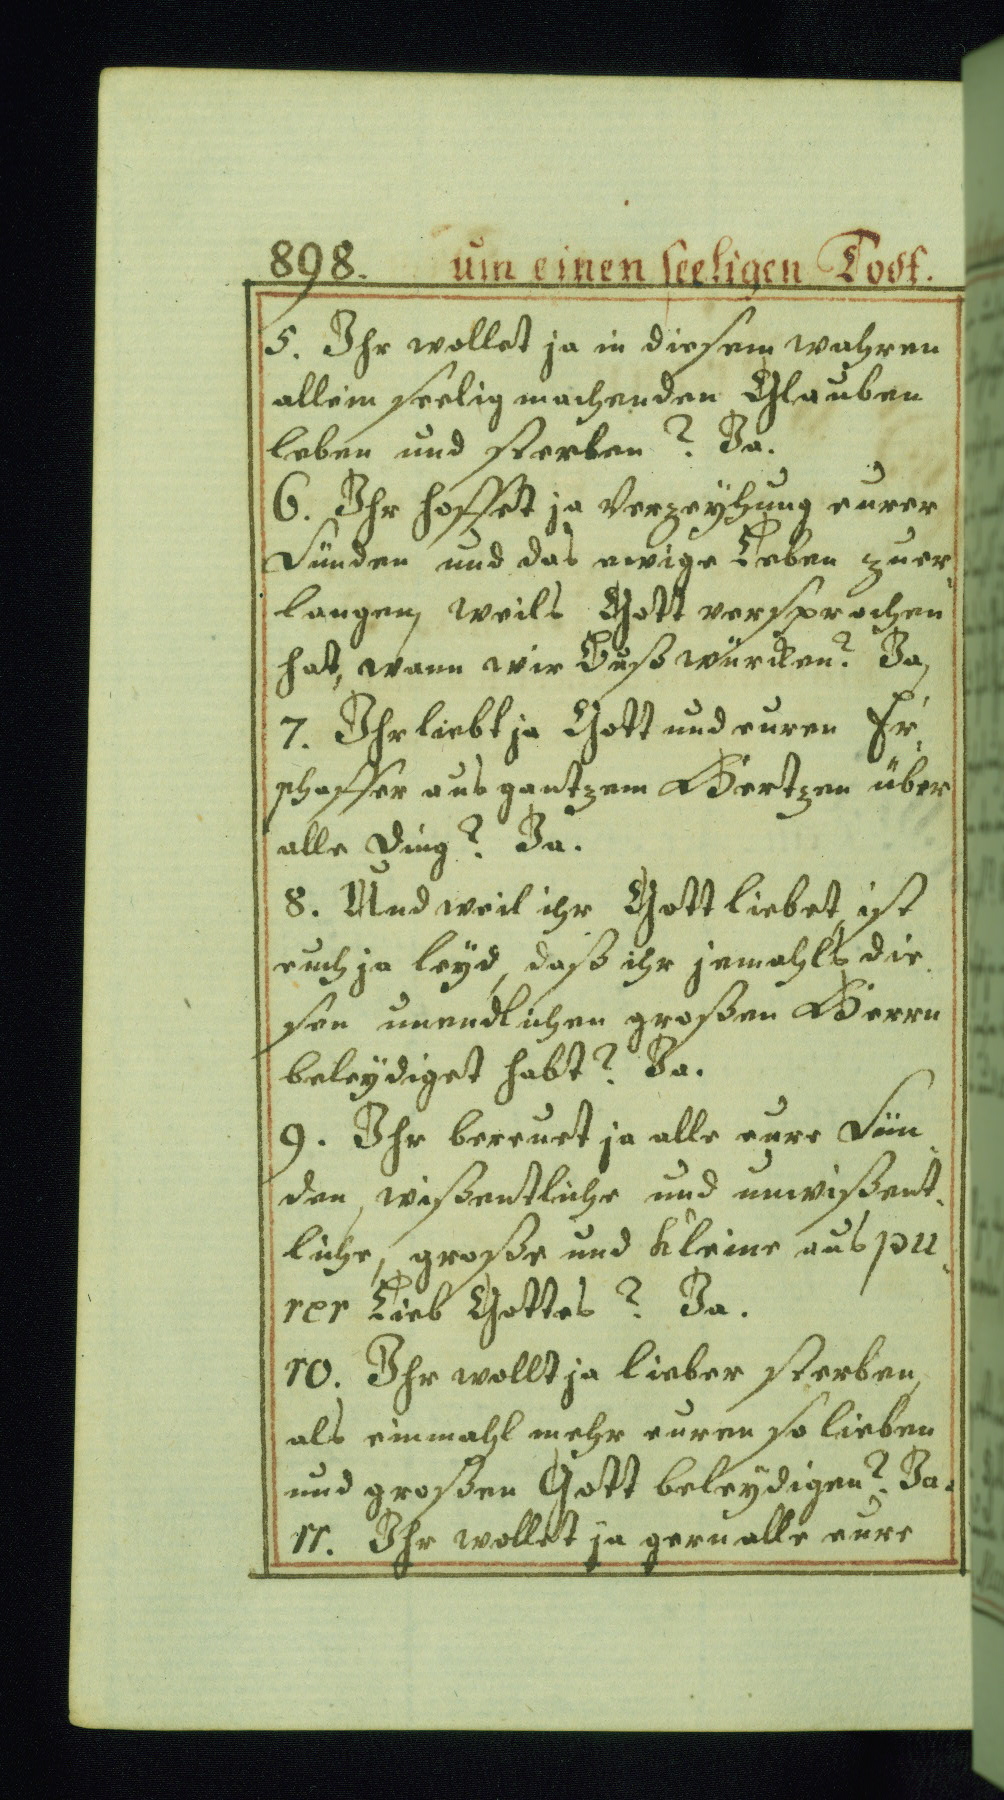 898. um einen seeligen Todt.
5. Ihr wollet ja in diesem wahren
allein seelig machenden Glauben
leben und sterben? Ja.
6. Ihr hoffet ja Verzeÿhung eurer
Sünden und das ewige Leben zu er¬
langen, weils Gott versprochen
hat, wann wir Buß würcken? Ja,
7. Ihr liebt ja Gott und euren Er¬
schaffer aus gantzem Hertzen über
alle Ding? Ja.
8. Und weil ihr Gott liebet, ist
euch ja leÿd, daß ihr jemahls die¬
sen unendlichen großen Herrn
beleÿdiget habt? Ja.
9. Ihr bereuet ja alle eure Sün¬
den, wißentliche und unwißent¬
liche, große und kleine aus pu¬
rer Lieb Gottes? Ja.
10. Ihr wollt ja lieber sterben,
als einmahl mehr euren so lieben
und großen Gott beleÿdigen? Ja.
11. Ihr wollet ja gern alle eure